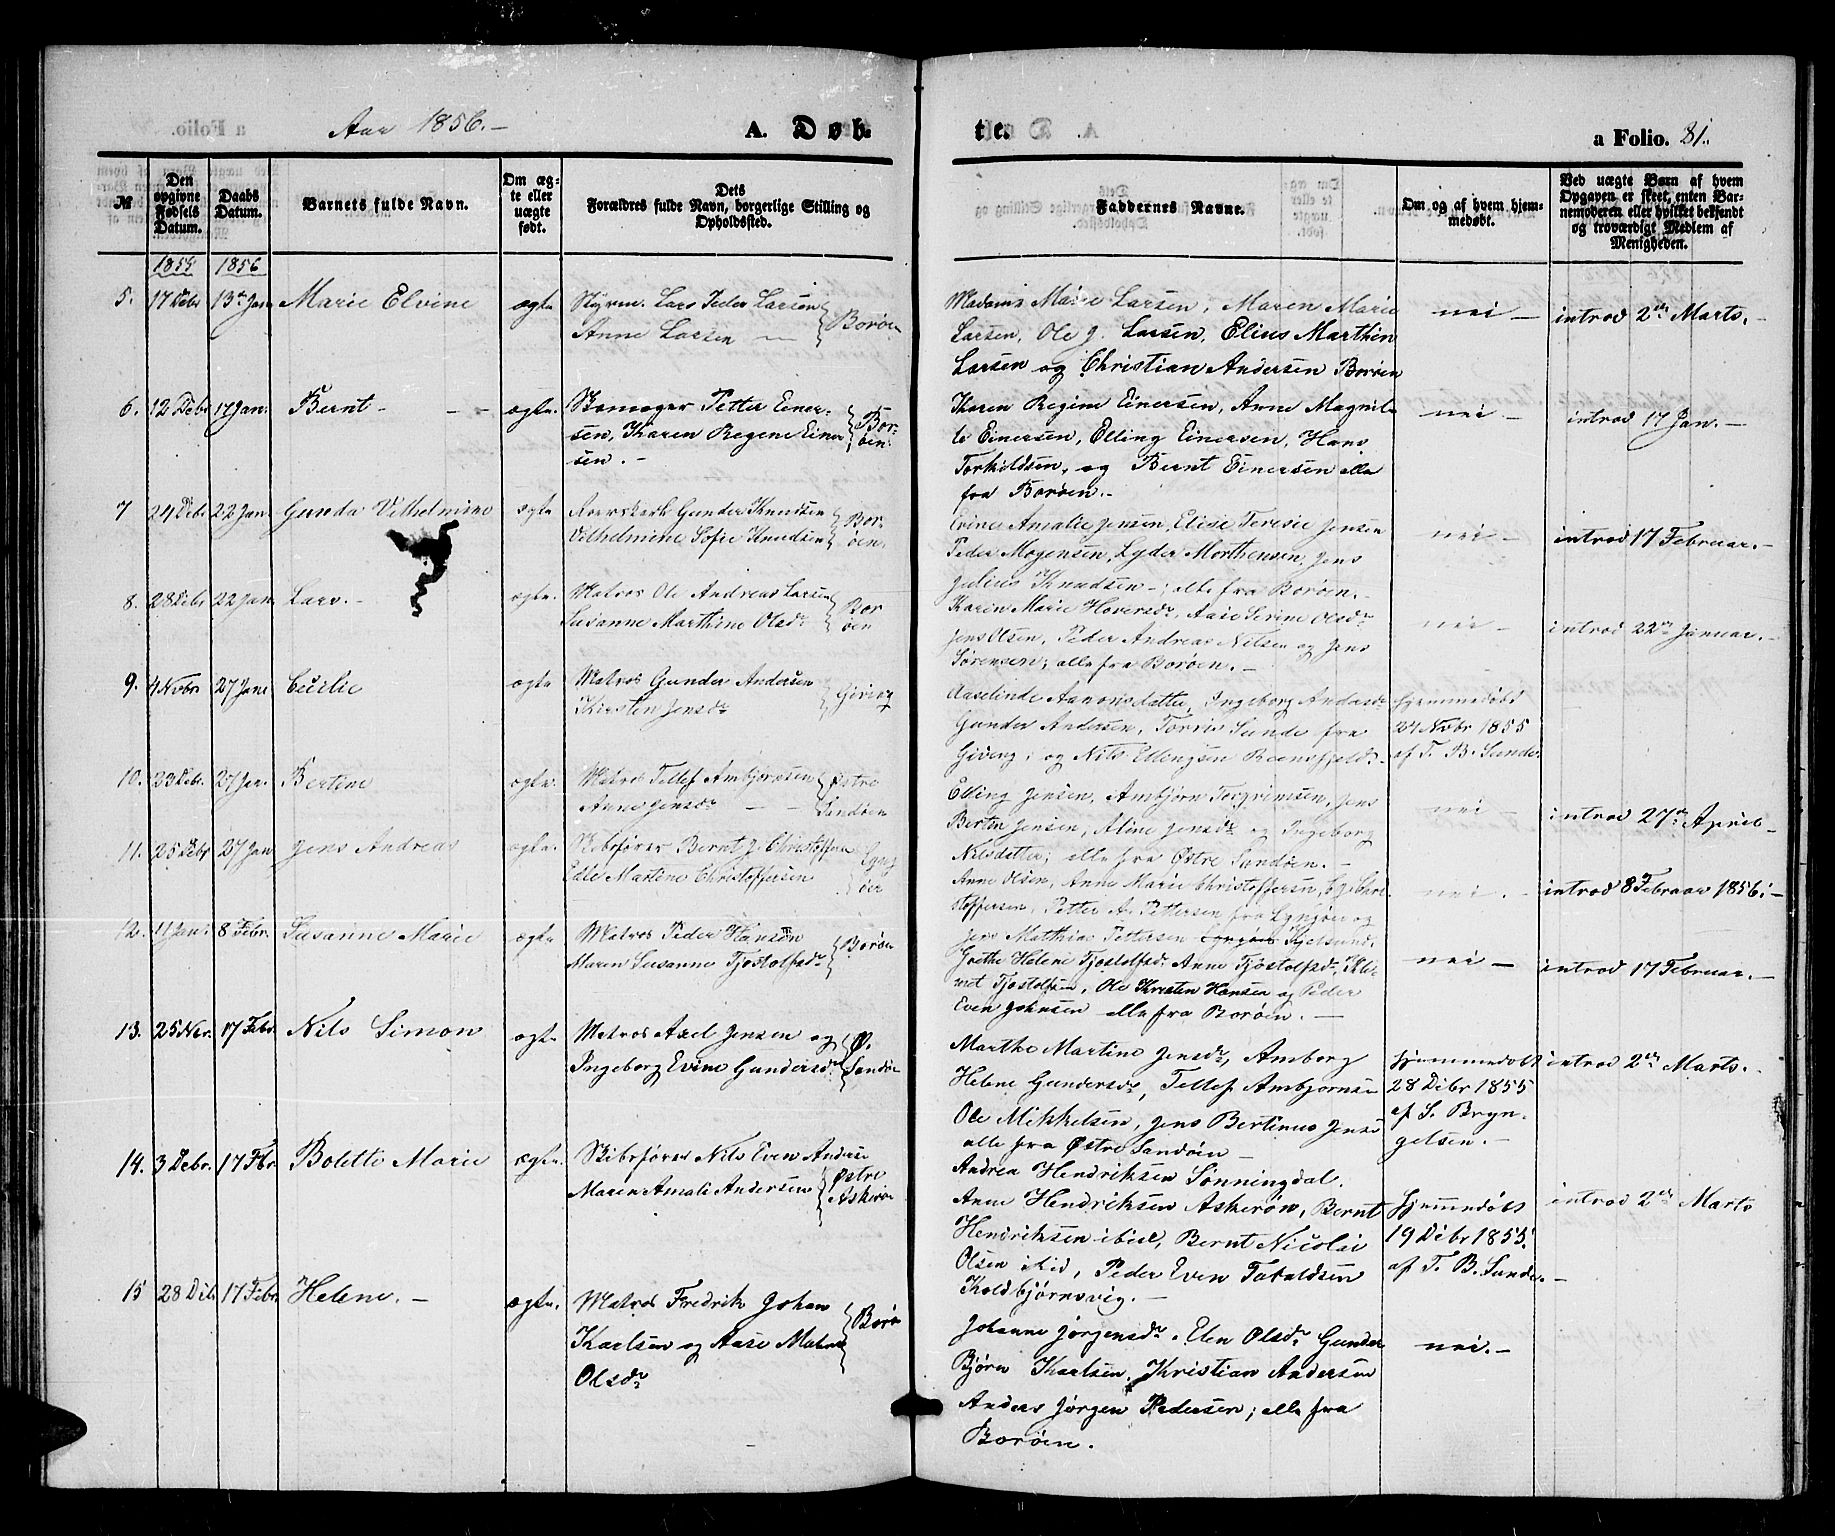 Aar 1856.-
A. Døb-
te.
a Folio. 81.
№
Den opgivne Fødsels Datum.
Daabs Datum.
Barnets fulde Navn.
Om ægte eller uægte født.
Forældres fulde Navn, borgerlige Stilling og Opholdssted.
Faddernes Navne.
Om og af hvem hjemmedøbt.
Ved uægte Børn af hvem Opgaven er skeet, enten Barnemoderen eller hvilket bekjendt og troværdigt Medlem af Menigheden.
1855 1856
5. 17 Debr 13de Jan Marie Elvine ægte
Styrm. Lars Peder Larsen
Anne Larsen — Borøen
Madame Marie Larsen, Maren Marie
Larsen, Ole J. Larsen, Elius Marthin
Larsen og Christian Andersen Borøen
nei — introd 2den Marts.-
6. 12 Debr 17 Jan. Bernt - - - ægte.
Petter Einer-
sen, Karen Regene Einer
sen. - Bor-
øen.
Karen Regine Einersen, Anne Magrit-
te Einersen, Elling Einersen, Hans
Torkildsen, og Bernt Einersen alle
fra Borøen.-
nei - introd 17 Jan. -
7 24 Debr 22 Jan. Gunda Vilhelmine ægte
Gunder Knudsen
Vilhelmine Sofie Knudsen Bor-
øen.
Evine Amalie Jensen, Elise Teresie Jensen
Peder Mogensen, Lyder Morthensen, Jens
Julius Knudsen -; alle fra Borøen.-
nei - introd 17 Februar. -
8. 28 Debr 22 Jan Lars. - ægte.
Matros Ole Andreas Larsen
Susanne Marthine Olsdr Bor
øen
Karen Marie Haversdr, Aase Serine Olsdr
Jens Olsen, Peder Andreas Nilsen og Jens
Sørensen; alle fra Borøen. -
nei - introd 22de Januar. -
9. 4 Novbr 27 Jan Cecilie ægte
Matros Gunder Andersen
Kirsten Jensdr Giving
Aaselinde Aanonsdatter, Ingeborg Andersdr
Gunder Andersen, Torris Sunde fra
Giveng; og Nils Ellingsen
Hjemmedøbt
24 Novbr 1855
af T. B. Sunde.
10. 23 Debr. 27 Jan. Bertine ægte.
Matros Tellef Ambjørnsen
Anne Jensdr - - Østre
Sandøen
Elling Jensen, Ambjørn Torgrimsen, Jens
Bertin Jensen, Aline Jensdr og Ingeborg
Nilsdatter; alle fra Østre Sandøen. -
nei - introd 27de April -
11. 25 Debr 27 Jan Jens Andreas ægte.
Skibsfører Bernt J. Christoffersen
Edle Martine Christoffersen Lyng
øer
Anne Olsen, Anne Marie Christoffersen, Chri
stoffersen, Petter A. Pettersen fra Lyngøer og
Jens Matthias Pettersen
nei. introd 8 Februar 1856. -
12. 11 Jan. 8 Febr. Susanne Marie ægte.
Matros Peder Hansen
Maren Susanne Tjostolfsdr Borøen
Grethe Helene Tjostolfsdr, Anne Tjøstolfsdr, Kle-
met Tjostolfsen, Ole Kristen Hansen og Peder
Even Johnsen alle fra Borøen. -
nei - introd 17 Februar. -
13. 25 Nov. 17 Febr. Nils Simon ægte.
Matros Axel Jensen og
Ingeborg Evine Gundersdr Ø.
Sandøe
Marthe Martine Jensdr, Amborg
Helene Gundersdr, Tellef Ambjørnsen
Ole Mikkelsen, Jens Bertinus Jensen
alle fra Østre Sandøen -
Hjemmedøbt
28 Debr 1855
af S. Bryn-
gelsen. -
introd 2den Marts. -
14. 3 Debr. 17 Fbr. Bolette Marie ægte.
Skibsfører Nils Even Anderse
Maren Amali Andersen Østre
Askerøe
Andrea Hendriksen Sønningdal.
Anne Hendriksen Askerøn, Bernt
Hendriksen ibid, Bernt Nicolai
Olsen ibid, Peder Even
Koldbjørnsvig. -
Hjemmedøbt
19 Debr 1855.
af T. B. Sunde. -
introd 2den Marts
15 28 Deb. 17 Febr. Helene. - ægte.
Matros Fredrik Johan
Karlsen og Aase Malene
Olsdr Borøe
Johanne Jørgensdr. Elen Olsdr Gunder
Bjørn Karlsen, Kristian Andersen
Anders Jørgen Pedersen; alle fra
Borøen.
nei. -